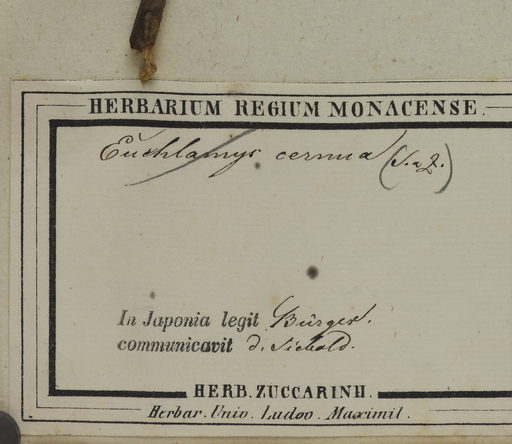 HERBARIUM REGIUM MONACENSE.
Euchlamys cernua (S. a Z.)
In Japonia legit Bürger.
communicavit d. Siebold.
HERB. ZUCCARINH.
Herbar. Univ. Ludov. Maximil.